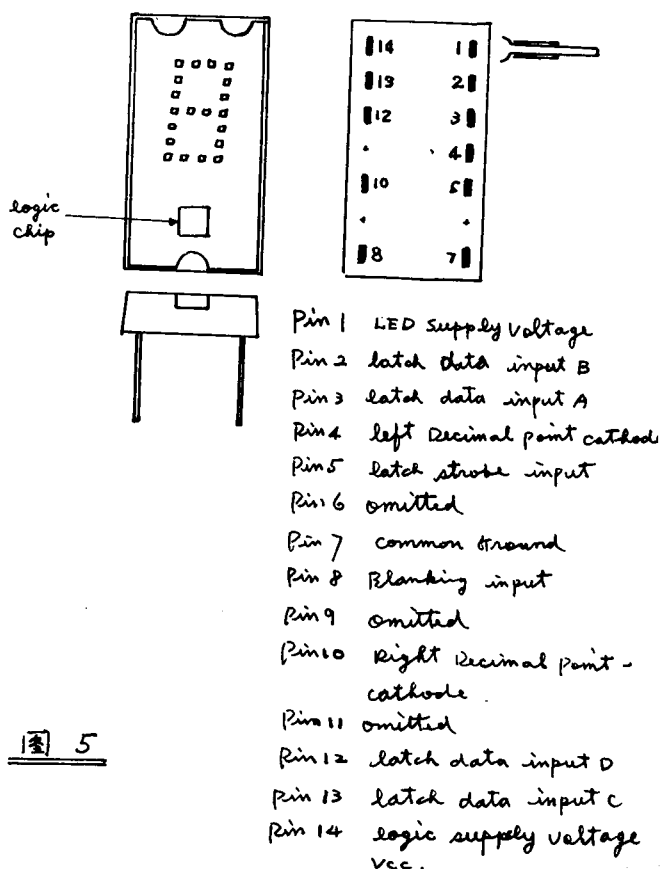 14 1
13 2
12 3
4
10 5
8 7
logic
chip
Pin 1 LED supply voltage
Pin 2 latch data input B
Pin 3 latch data input A
Pin 4 left Decimal point cathode
Pin 5 latch strobe input
Pin 6 omitted
Pin 7 common Ground
Pin 8 Blanking input
Pin 9 omitted
Pin 10 Right Decimal point -
cathode.
Pin 11 omitted
Pin 12 latch data input D
Pin 13 latch data input C
Pin 14 logic supply voltage
Vcc.
图 5